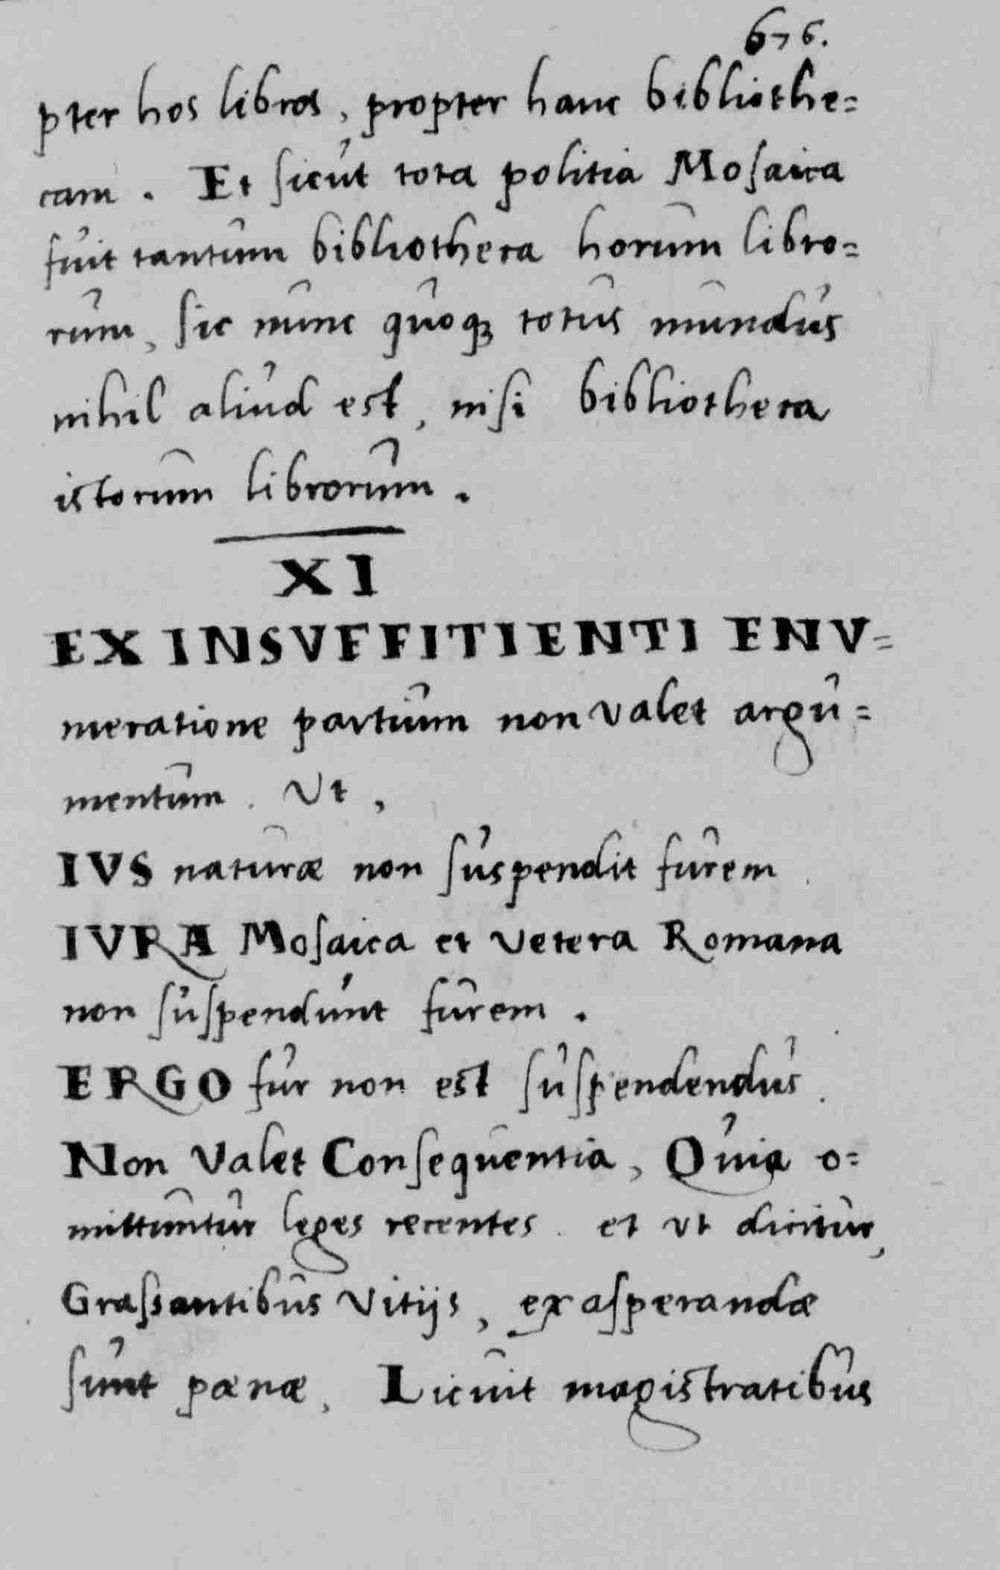 676.
pter hos libros, propter hanc bibliothe=
cam. Et sicut tota politia Mosaica
fuit tantum bibliotheca horum libro=
rum, sic nunc quoqꝫ totus mundus
nihil aliud est, nisi bibliotheca
istorum librorum.
XI
EX INSVFFITIENTI ENV=
meratione partium non valet argu=
mentum. Vt,
IVS naturæ non suspendit furem.
IVRA Mosaica et vetera Romana
non suspendunt furem.
ERGO fur non est suspendendus.
Non valet Consequentia, Quia o=
mittuntur leges recentes. et vt dicitur,
Grassantibus vitijs, exasperandæ
sunt pœnæ, Licuit magistratibus